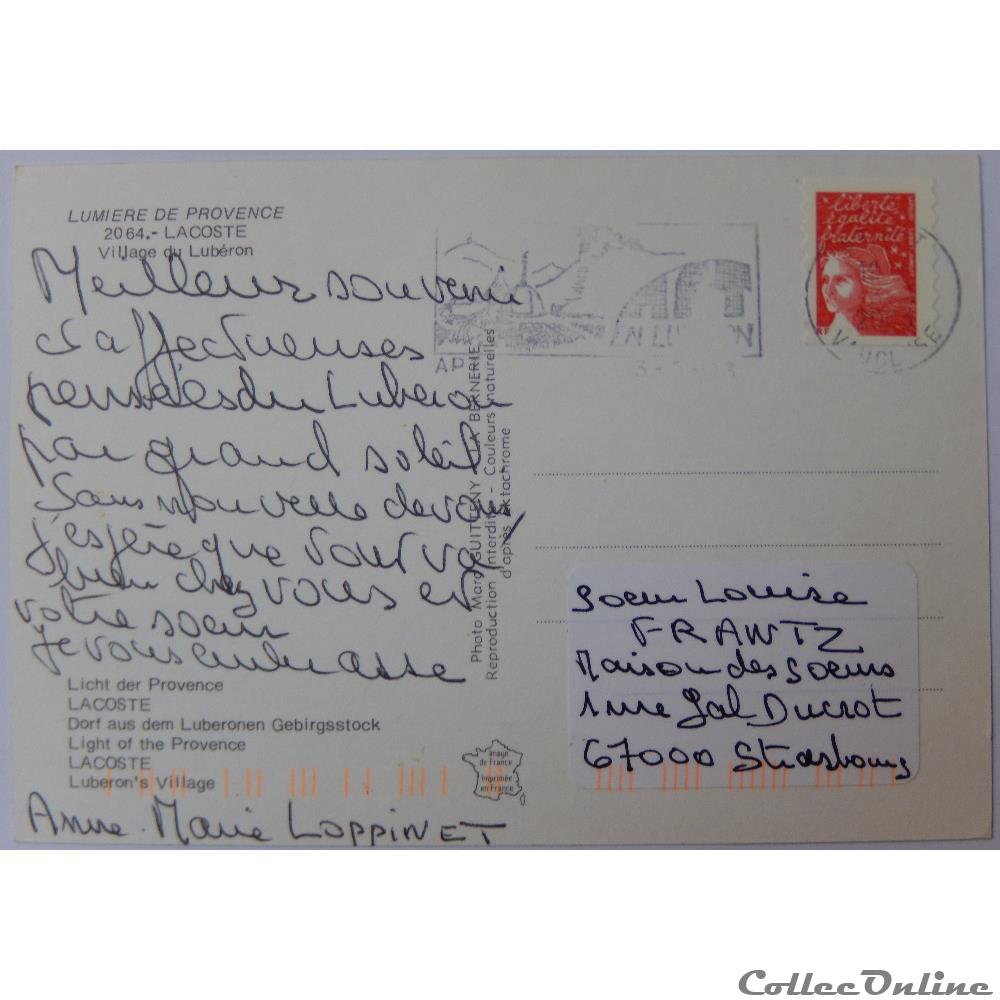 LUMIERE DE PROVENCE
2064.- LACOSTE
Village du Lubéron
Meilleur souvenir
et affectueuses
pensées du Luberon
par grand soleil
Sans nouvelle de vous
j'espère que tout va
bien chez vous et
votre soeur
Je vous embrasse
Licht der Provence
LACOSTE
Dorf aus dem Luberonen Gebirgsstock
Light of the Provence
LACOSTE
Luberon's Village
Anne-Marie LOPPINET
Photo Marc GUITTENY LA BERNERIE
Reproduction Interdite - Couleurs naturelles
d'après Ektachrome
image
de France
imprimée
en France
AP
EN LU N
liberté
égalité
fraternité
RF
Soeur Louise
FRANTZ
Maison des Soeurs
1 rue Gal Ducrot
67000 Strasbourg
CollecOnline